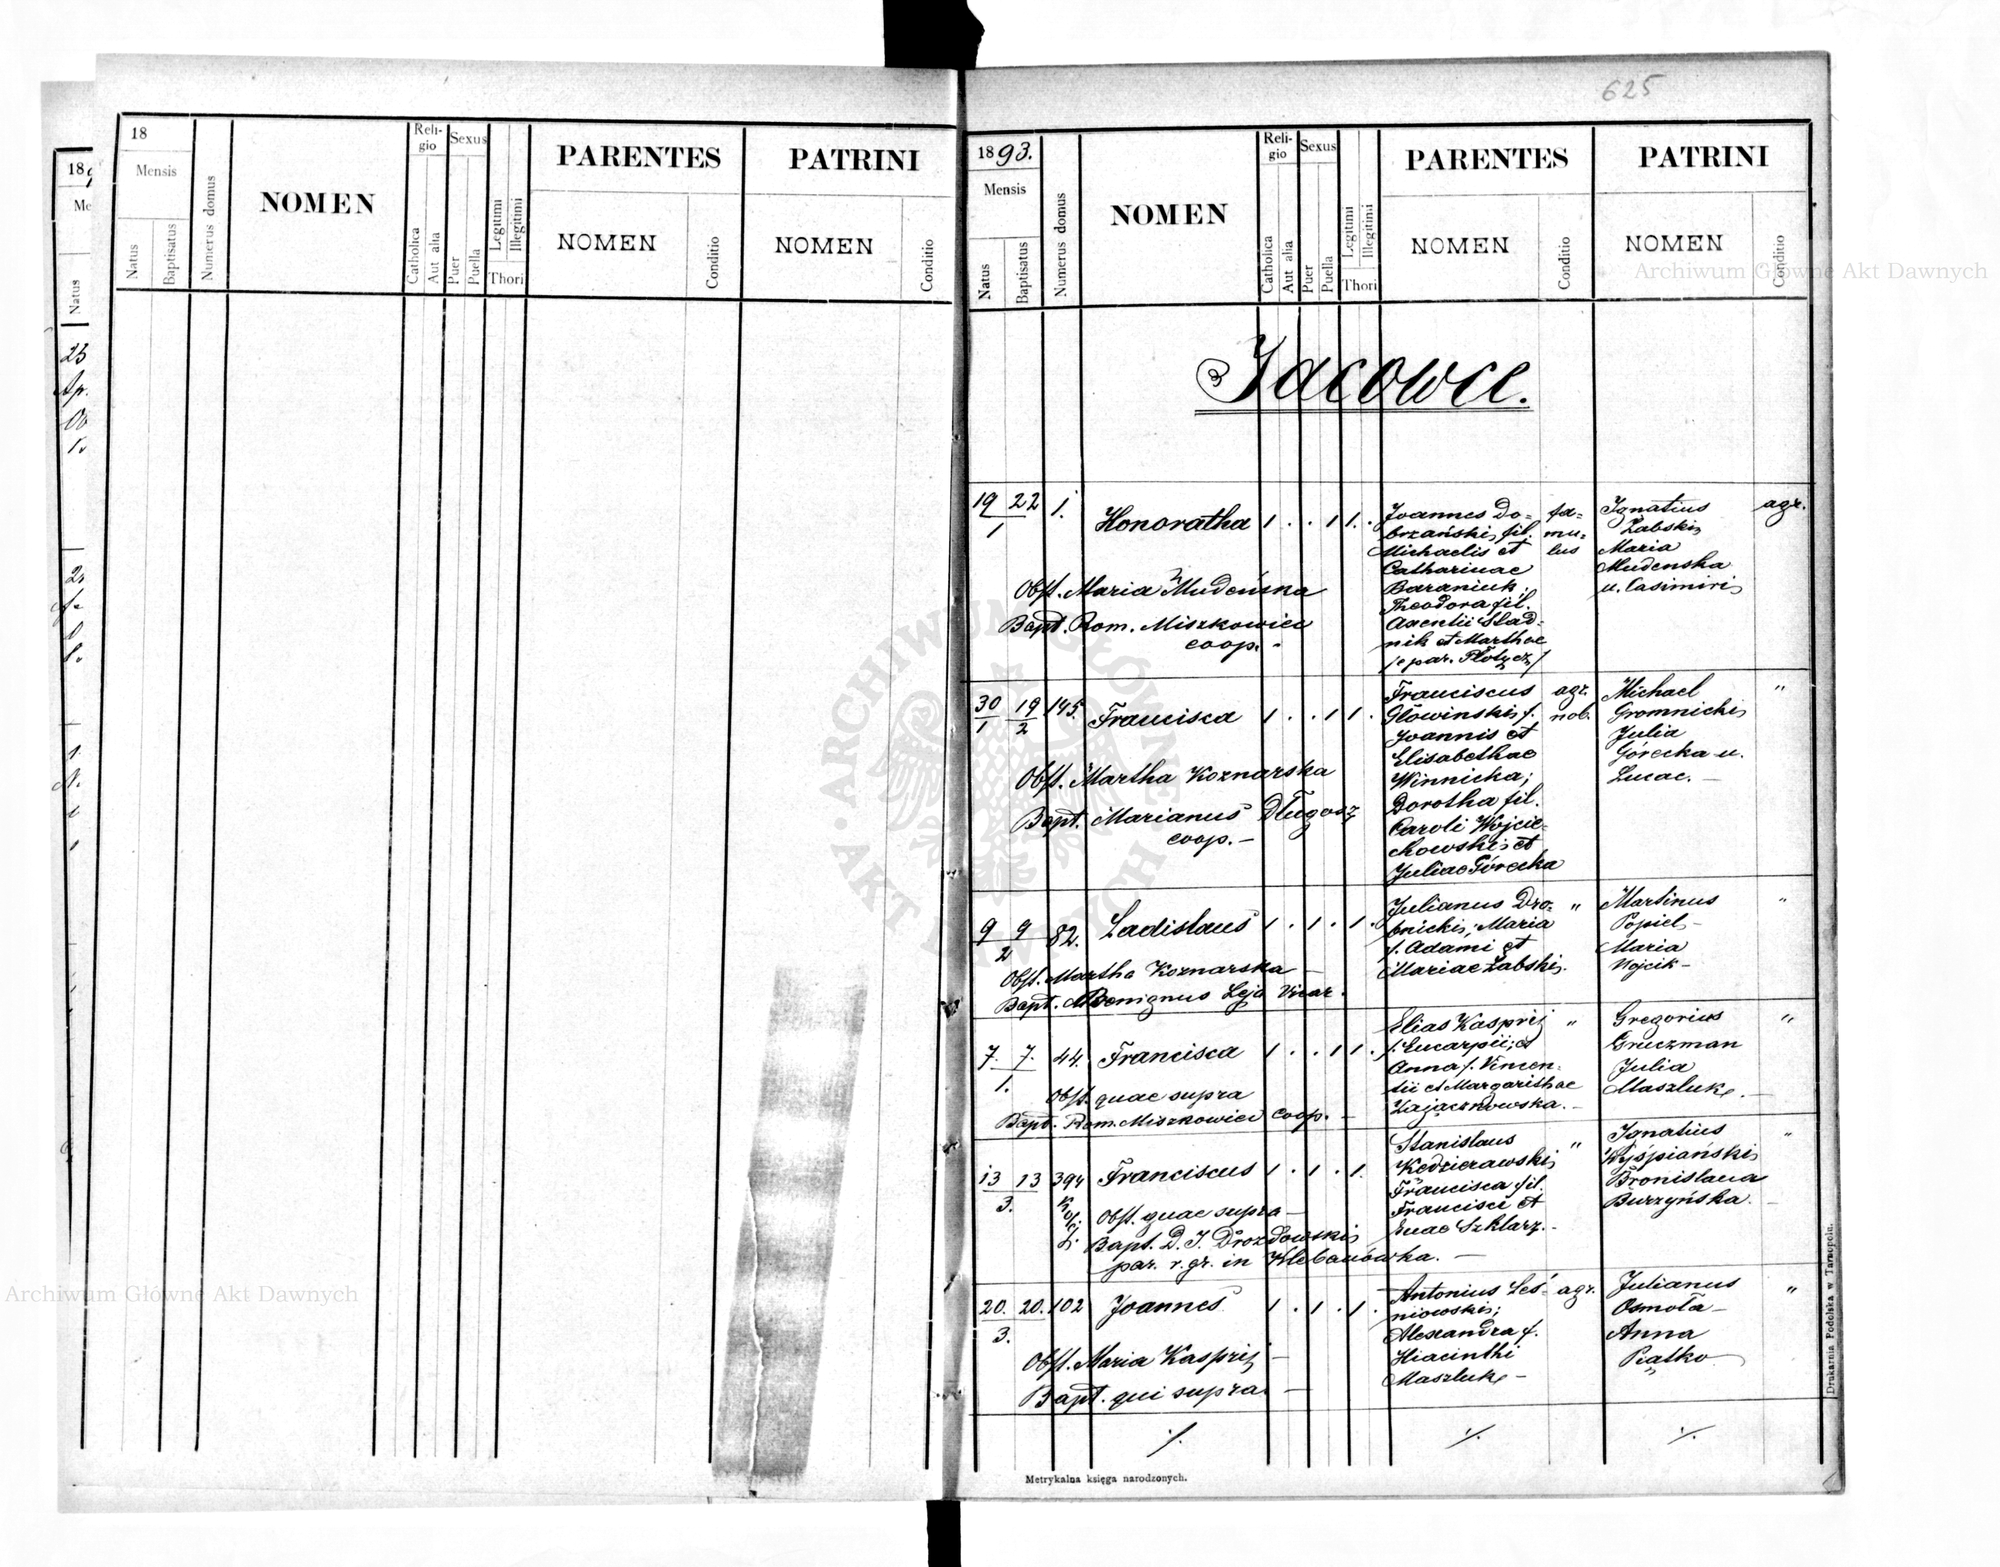 625
18
Mensis
Natus
Baptisatus
Numerus domus
NOMEN
Religio
Catholica
Aut alia
Sexus
Puer
Puella
Legitimi
Illegitimi
Thori
PARENTES
NOMEN
Conditio
PATRINI
NOMEN
Conditio
1893.
Mensis
Natus
Baptisatus
Numerus domus
NOMEN
Religio
Catholica
Aut alia
Sexus
Puer
Puella
Legitimi
Illegitimi
Thori
PARENTES
NOMEN
Conditio
PATRINI
NOMEN
Conditio
Archiwum Główne Akt Dawnych
Jacowce.
19 22 1. Honoratha 1 . . 1 1 .
1
Joannes Do-
brzański, fil.
Michaelis et
Catharinae
Baraniuk;
Theodora fil.
Axentii Stad-
nik et Marthae
/e par. Płotycz/
fa-
mu-
lus
Ignatius
Żabski,
Maria
Mudenska
u. Casimiri
agr.
Obst. Maria Mudeńska
Bapt. Rom. Miszkowicz
coop.
30 19 145. Francisca 1 . . 1 1 .
1 2
Franciscus
Głowinski, f.
Joannis et
Elisabethae
Winnicka;
Dorotha fil.
Caroli Wojcie-
chowski, et
Juliae Górecka
agr.
nob.
Michael
Gromnicki,
Julia
Górecka u.
Lucae. -
"
Obst. Martha Koznarska
Bapt. Marianus Długosz
coop. -
9 9 82. Ladislaus 1 . 1 . 1 .
2
Julianus Dro-
bnicki; Maria
f. Adami et
Mariae Żabski,
"
Martinus
Popiel,
Maria
Wojcik -
"
Obst. Martha Koznarska -
Bapt. Benignus Leja Vicar.
7. 7. 44. Francisca 1 . . 1 1 .
1.
Elias Kasprij
f. Eucarpii; et
Anna f. Vincen-
tii et Margarithae
Zajączkowska. -
"
Gregorius
Gruczman
Julia
Maszluk, -
"
Obst. quae supra
Bapt. Rom. Miszkowicz coop. -
13 13 394 Franciscus 1 . 1 . 1 .
3.
Stanislaus
Kędzierawski,
Francisca fil.
Francisci et
Evae Szklarz. -
"
Ignatius
Wyśpiański,
Bronislava
Burzyńska. -
"
Obst. quae supra -
Bapt. D. J. Drozdowski,
par. r. gr. in Klebanówka. -
20. 20. 102 Joannes 1 . 1 . 1 .
3.
Antonius Leś-
niowski;
Alexandra f.
Hiacinthi
Maszluk, -
agr.
Julianus
Osmoła -
Anna
Piątko
"
Obst. Maria Kasprij -
Bapt. qui supra -
./.
./.
./.
Metrykalna księga narodzonych.
Drukarnia Podolska w Tarnopolu.
Archiwum Główne Akt Dawnych
ARCHIWUM GŁÓWNE AKT DAWNYCH